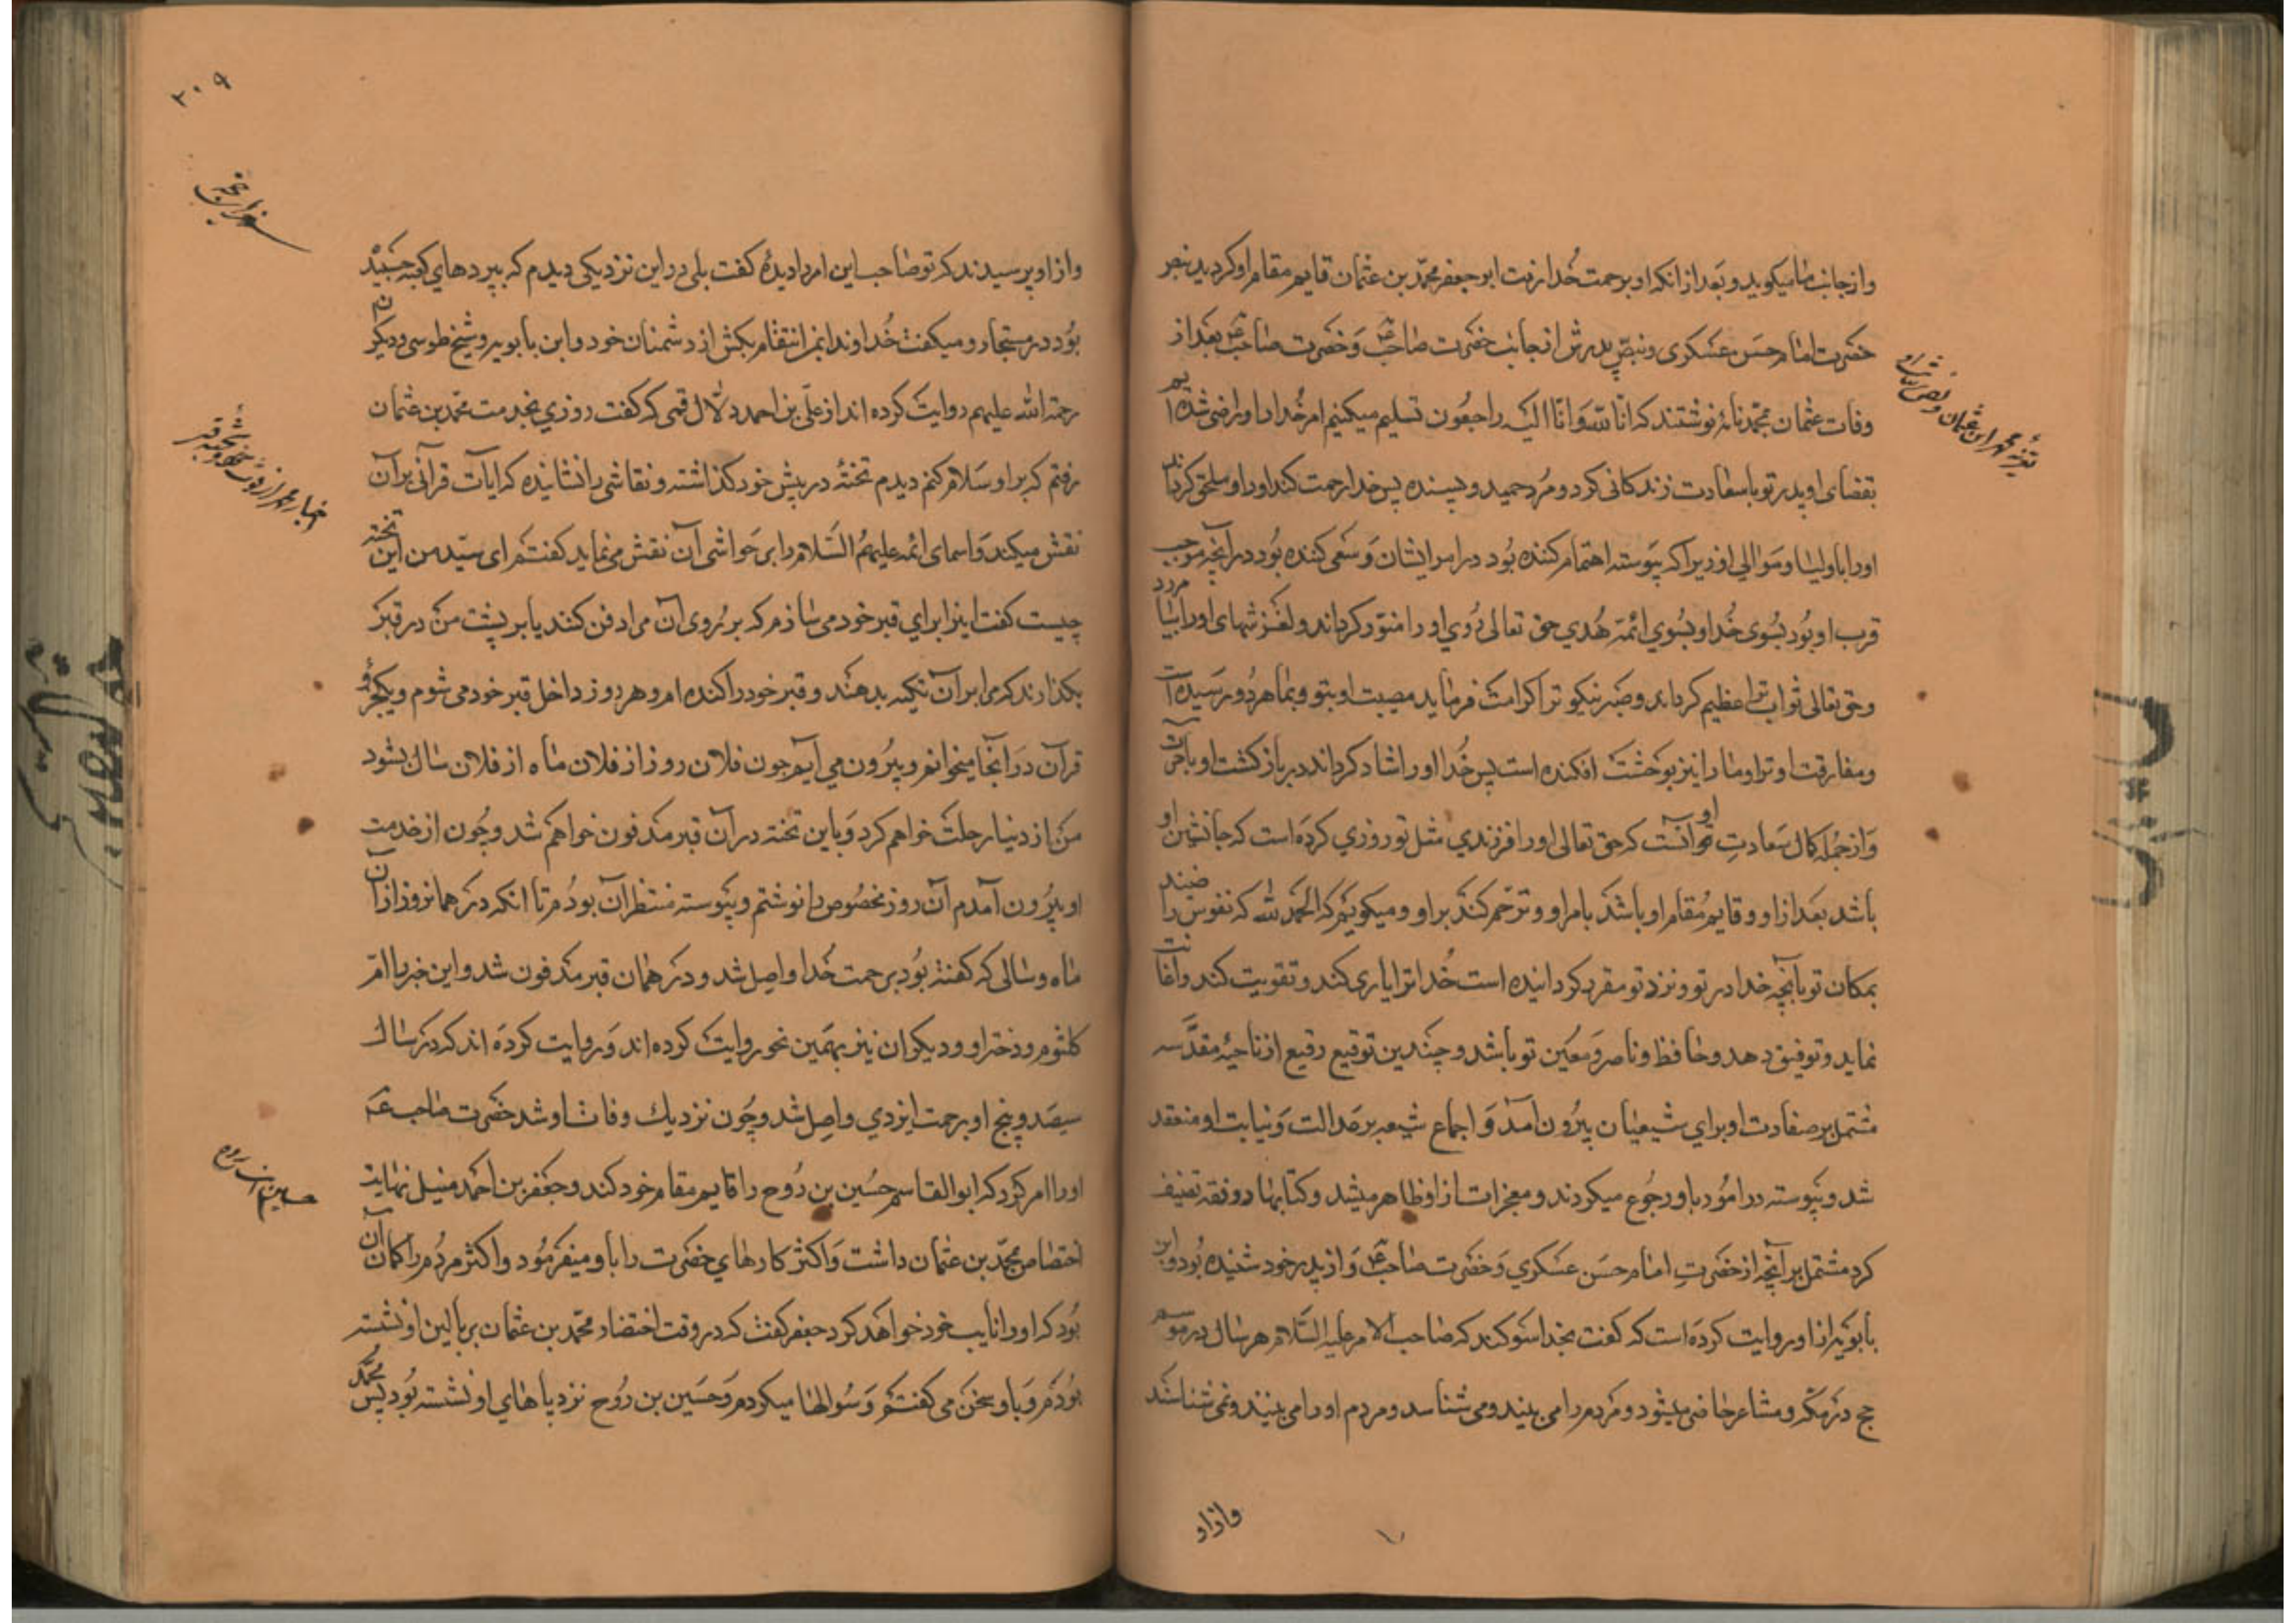 و از جانب ما میگوید و بعد از انکه او برحمت خدا رفت ابو جعفر محمد بن عثمان قایم مقام او کردید بنص
حضرت امام حسن عسکری و بنص پدرش از جانب حضرت صاحب ع و حضرت صاحب ع بعد از
وفات عثمان بمحمد نامهٔ نوشتند که انا لله و انا الیه راجعون تسلیم میکنیم امر خدا را و راضی شده‌ایم
بقضای او پدر تو باسعادت زندکانی کرد و مُرد حمید و پسندیده پس خدا رحمت کند او را و ملحق کرداند
او را باولیا و موالی او زیرا که پیوسته اهتمام کننده بود در امر ایشان و سعی کننده بود در آنچه موجب
قرب او بود بسوی خدا و بسوی ائمهٔ هُدی حق تعالی رُوی او را منوّر کرداند و لغزشهای او را بیامرزد
و حق تعالی ثواب ترا عظیم کرداند و صبر نیکو ترا کرامت فرماید مصیبت او بتو و بما هر دو رسیده است
و مفارقت او ترا و ما را نیز بوحشت افکنده است پس خُدا او را شاد کرداند در بازکشت او بآخرت
و از جُمله کمال سَعادتِ او آنست که حق تعالی او را فرزندي مثل تو روزي کرده است که جانشین او
باشد بعد از او و قایم مُقام او باشد بامر او و ترحّم کند بر او و میکویم که الحمد لله که نفوس راضیند
بمکان تو بآنچه خدا در تو و نزد تو مقرر کردانیده است خُدا ترا یاری کند و تقویت کند و اعانت
نماید و توفیق دهد و حافظ و ناصر و مُعین تو باشد و چندین توقیع رفیع از ناحیهٔ مقدّسه
مشتمل بر سفارت او براي شیعیان بیرُون آمد و اجماع شیعه بر عدالت و نیابت او منعقد
شد و پیوسته در امُور باو رجُوع میکردند و معجزات از او ظاهر میشد و کتابها در فقه تصنیف
کرد مشتمل بر آنچه از حضرتِ امام حسَن عسکري و حضرت صاحب ع و از پدر خود شنیده بُود و ابن
بابویه از او روایت کرده است که کفت بخدا سوکند که صاحب الامر علیه السّلام هر سال در موسم
حج در مکه و مشاعر حاضر میشود و مردم را می بیند و می شناسد و مردم او را می بینند و نمی شناسند
و از او
تعزیهٔ محمد ابن عثمان و نص
۲۰۹
و از او پرسیدند که تو صاحب این امر را دیدهٔ کفت بلی در این نزدیکی دیدم که بپردهای کعبه چسپیده
بُود در مستجار و میکفت خُداوندا بمن انتقام بکش از دشمنان خود و ابن بابویه و شیخ طوسی و دیکران
رحمة الله علیهم روایت کرده اند از علی بن احمد دلال قمی که کفت روزي بخدمت محمد بن عثمان
رفتم که بر او سَلام کنم دیدم تختهٔ در پیش خود کذاشته و نقاشی را نشانیده که ایات قرآنی بر آن
نقش میکند و اسمای ائمه علیهمُ السّلام را بر حَواشی آن نقش می نماید کفتم ای سیّد من این تخته
چیست کفت اینرا برای قبر خود می سازم که بر رُوی آن مرا دفن کنند یا بر پشت من در قبر
بکذارند که مرا بر آن تکیه بدهند و قبر خود را کنده ام و هر روز داخل قبر خود می شوم و یکجزو
قرآن در آنجا میخوانم و بیرُون می آیم چون فلان روز از فلان ماه از فلان سال بشود
من از دنیا رحلت خواهم کرد و با این تخته در آن قبر مدفون خواهم شد و چُون از خدمت
او بیرُون آمدم آن روز مخصُوص را نوشتم و پیوسته منتظر آن بودُم تا آنکه در همان روز از آن
ماه و سالی که کفته بُود برحمت خُدا واصِل شد و در همان قبر مدفون شد و این خبر را ام
کلثوم دختر او و دیکران نیز بهمین نحو روایت کرده اند و روایت کردَه اند که در سال
سیصَد و پنج او برحمت ایزدي واصل شد و چُون نزدیك وفات او شد حضرت صاحب ع
او را امر کرد که ابو القاسم حُسین بن رُوح را قایم مقام خود کند و جعفر بن احمد متیل نهایت
اختصاص بمحمّد بن عثمان داشت و اکثر کارهاي حضرت را باو میفرمُود و اکثر مردُم را کمان آن
بُود که او را نایب خود خواهد کرد جعفر کفت که در وقت احتضار محمّد بن عثمان بر بالین او نشسته
بُودَم و با او سخن می کفتم و سُوالها میکردم و حسین بن رُوح نزد پاهاي او نشسته بود پس محمّد
حسین بن روح